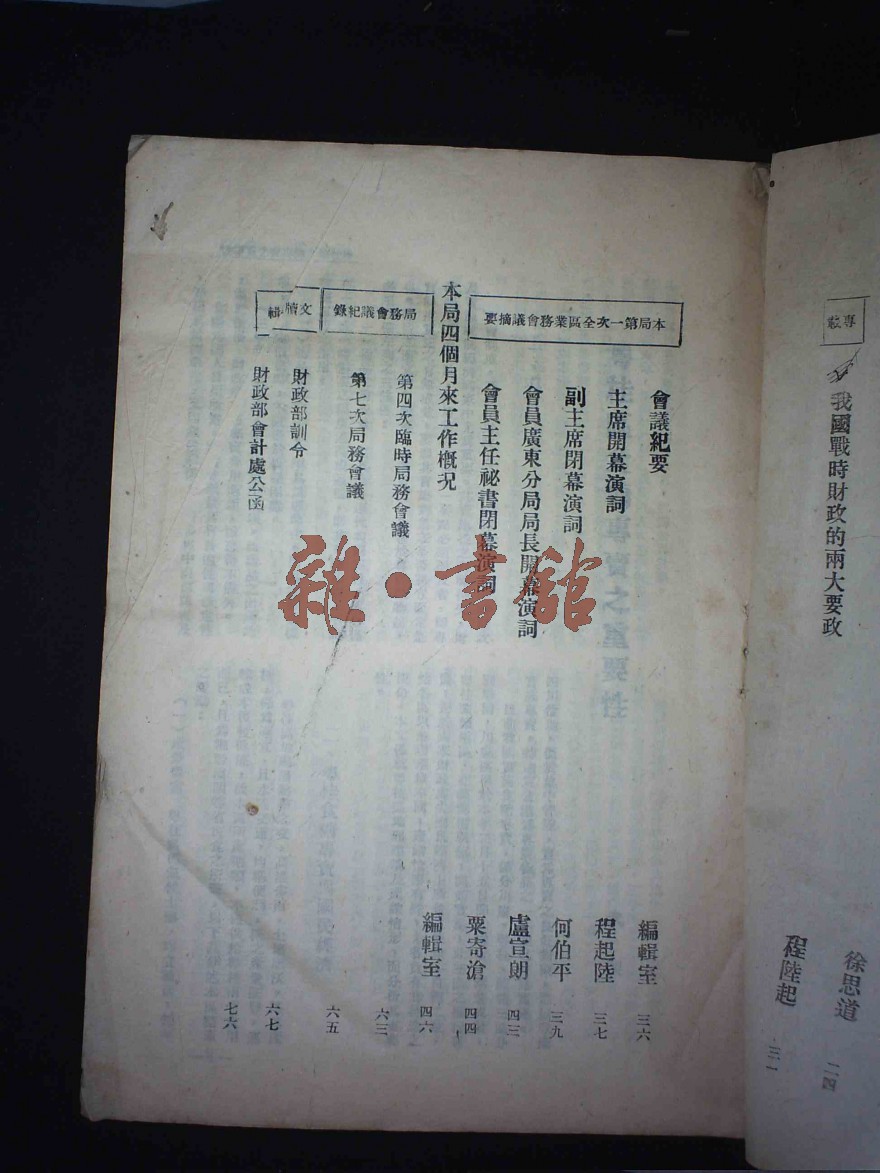 專載
我國戰時財政的兩大要政
徐思道 二四
程陸起 三一
本局第一次全區業務會議摘要
會議紀要 編輯室 三六
主席開幕演詞 程起陸 三七
副主席閉幕演詞 何伯平 三九
會員廣東分局局長開幕演詞 盧宣朗 四三
會員主任祕書閉幕演詞 粟寄滄 四四
本局四個月來工作概況 編輯室 四六
局務會議紀錄
第四次臨時局務會議 六三
第七次局務會議 六五
文牘輯
財政部訓令 六七
財政部會計處公函 七六
雜·書館